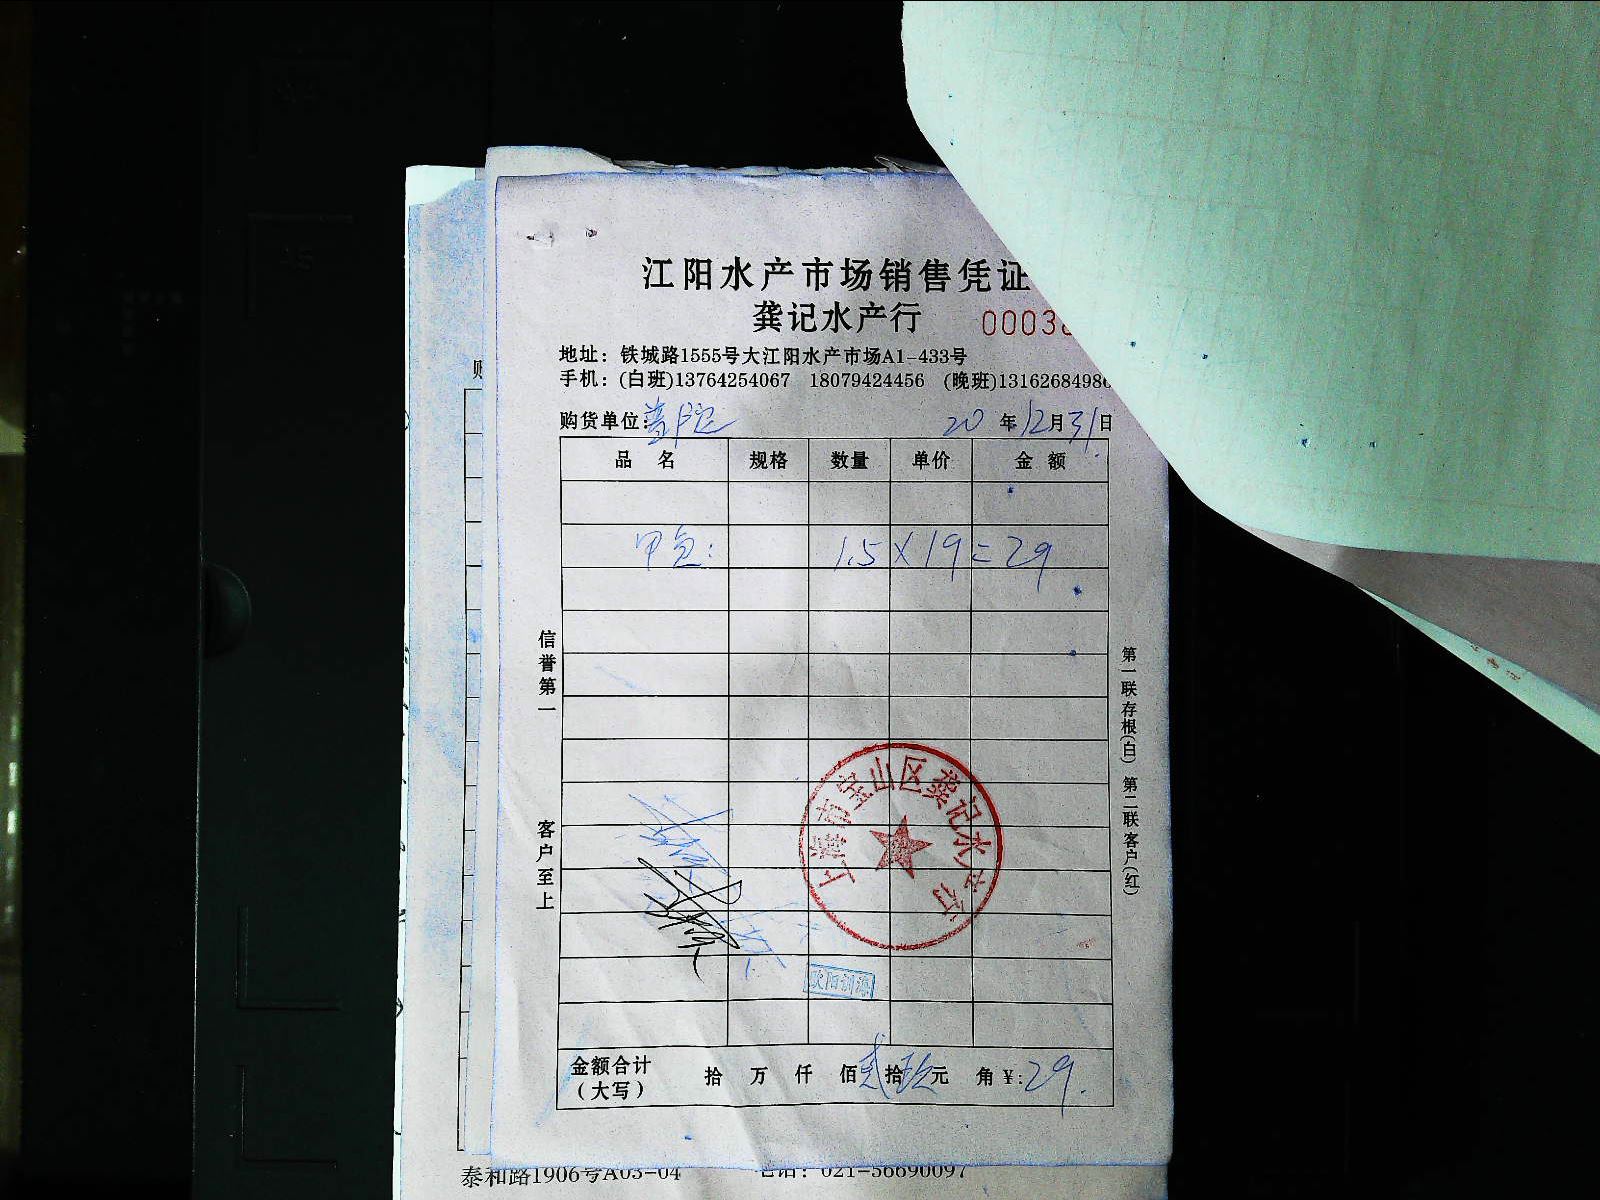 江阳水产市场销售凭证
龚记水产行 0003
地址：铁城路1555号大江阳水产市场A1-433号
手机：(白班)13764254067 18079424456 (晚班)1316268498
购货单位：普陀 20 年 12 月 31 日
品 名 规格 数量 单价 金 额
甲鱼： 1.5×19=29
信誉第一
客户至上
第一联存根(白) 第二联客户(红)
上海市宝山区龚记水产行
欧阳训海
金额合计 (大写) 拾 万 仟 佰 贰 拾 玖 元 角 ￥：29.
泰和路1906号A03-04 电话：021-56690097